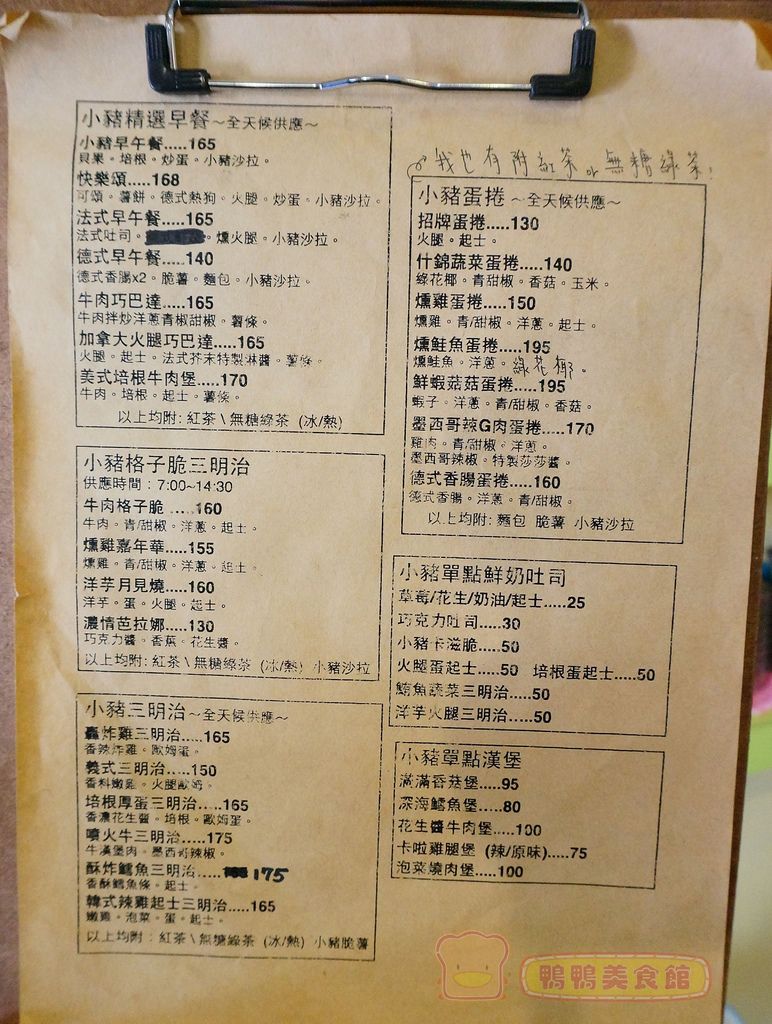 小豬精選早餐~全天候供應~
小豬早午餐.....165
貝果。培根。炒蛋。小豬沙拉。
快樂頌.....168
可頌。薯餅。德式熱狗。火腿。炒蛋。小豬沙拉。
法式早午餐.....165
法式吐司。。燻火腿。小豬沙拉。
德式早午餐.....140
德式香腸x2。脆薯。麵包。小豬沙拉。
牛肉巧巴達.....165
牛肉拌炒洋蔥青椒甜椒。薯條。
加拿大火腿巧巴達.....165
火腿。起士。法式芥末特製淋醬。薯條。
美式培根牛肉堡.....170
牛肉。培根。起士。薯條。
以上均附: 紅茶\無糖綠茶 (冰/熱)
小豬格子脆三明治
供應時間：7:00~14:30
牛肉格子脆 .....160
牛肉。青/甜椒。洋蔥。起士。
燻雞嘉年華.....155
燻雞。青/甜椒。洋蔥。起士。
洋芋月見燒.....160
洋芋。蛋。火腿。起士。
濃情芭拉娜.....130
巧克力醬。香蕉。花生醬。
以上均附: 紅茶\無糖綠茶 (冰/熱) 小豬沙拉
小豬三明治~全天候供應~
轟炸雞三明治.....165
香辣炸雞。歐姆蛋。
義式三明治.....150
香料嫩雞。火腿歐姆。
培根厚蛋三明治.....165
香濃花生醬。培根。歐姆蛋。
噴火牛三明治.....175
牛漢堡肉。墨西哥辣椒。
酥炸鱈魚三明治.....175
香酥鱈魚條。起士。
韓式辣雞起士三明治.....165
嫩雞。泡菜。蛋。起士。
以上均附：紅茶\無糖綠茶 (冰/熱) 小豬脆薯
我也有附紅茶or無糖綠茶!
小豬蛋捲 ~全天候供應~
招牌蛋捲.....130
火腿。起士。
什錦蔬菜蛋捲.....140
綠花椰。青甜椒。香菇。玉米。
燻雞蛋捲.....150
燻雞。青/甜椒。洋蔥。起士。
燻鮭魚蛋捲.....195
燻鮭魚。洋蔥。綠花椰。
鮮蝦菇菇蛋捲.....195
蝦子。洋蔥。青/甜椒。香菇。
墨西哥辣G肉蛋捲.....170
雞肉。青/甜椒。洋蔥。
墨西哥辣椒。特製莎莎醬。
德式香腸蛋捲.....160
德式香腸。洋蔥。青/甜椒。
以上均附: 麵包 脆薯 小豬沙拉
小豬單點鮮奶吐司
草莓/花生/奶油/起士.....25
巧克力吐司.....30
小豬卡滋脆.....50
火腿蛋起士.....50 培根蛋起士.....50
鮪魚蔬菜三明治.....50
洋芋火腿三明治.....50
小豬單點漢堡
滿滿香菇堡.....95
深海鱈魚堡.....80
花生醬牛肉堡.....100
卡啦雞腿堡 (辣/原味).....75
泡菜燒肉堡.....100
鴨鴨美食館